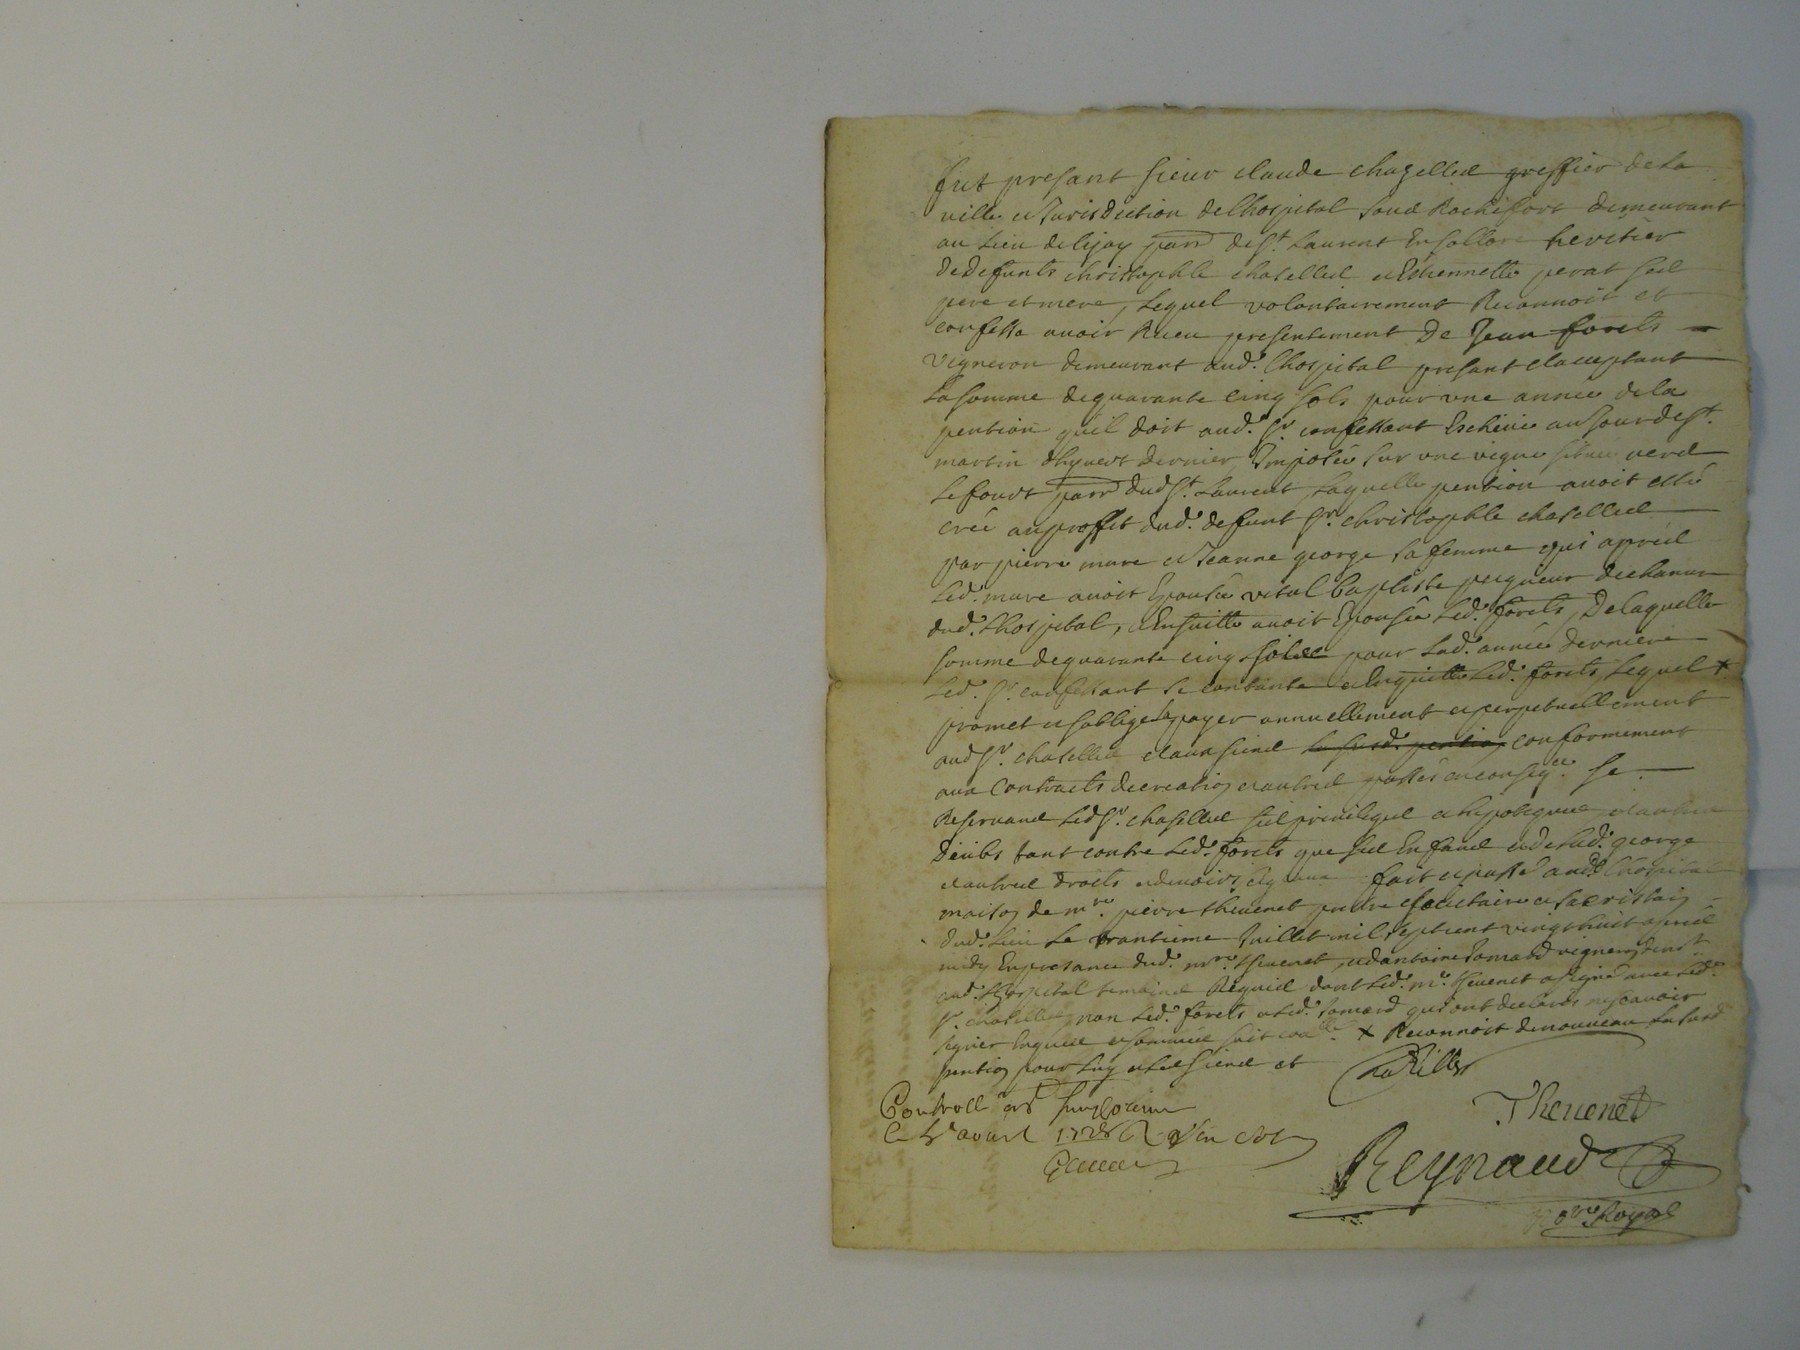 fut presant sieur claude chazelled greffier de la
ville et Jurisdiction delhospital soud Rochefort demeurant
au Lieu de parr de St. Laurent En sollore heretier
de defunts christophle chaselled et Estiennette perat sed
pere et mere, Lequel volontairement Reconnoit et
confesse avoir Receu presentement De Jean forets
vigneron demeurant aud. Lhospital presant et acceptant
La somme de quarante cinq sols pour une annee de la
pention quil doit aud. Sr. confessant Escheue au Jour de St.
martin dhyvert dernier Imposée sur une vigne situee verd
Le fourt paroi dud St. Laurent, Laquelle pention avoit esté
créé au proffit dud. deffunt Sr. christophle chaselled
par pierre mure et Jeanne george sa femme qui apréd
Led. mure avoit Epousée vital Baptiste pigneur de chanvre
dud. Lhospital, et Ensuitte avoit Epousée Led. forets, De laquelle
somme de quarante cinq sols pour Lad. année derniere
Led. Sr. confessant se contente et En quitte Led. forets, Lequel x
promet et soblige La payer annuellement et perpetuellement
aud Sr. chaselled et aux siend la susd. pention conformement
aux Contracts de creation et autred passés en conseqce. Se
Reservand Led Sr. chaselled sed privileged et hipotequed, et autred
Deubs tant contre Led. forets que sed Enfand et de Lad. george
et autred droits et devoirs fait et passé aud. Lhospital
maison de mre. pierre thevenet pretre et sacristain
dud. Lieu Le trantieme Juillet mil sept cent vingt huit apréd
midy En presance dud. mre. thevenet, et dantoine Jomard vigneron demt.
aud. Lhospital temoind Requid dont Led. mre. thevenet a signé avec Led.
Sr. chaselled non Led. forets et Led. Jomard qui ont declaré ne scavoir
signer Enquid et sommed soit x Reconnoit de nouveau La susd
pention pour Luy et Led siend et
Chazelles
Thevenet
Controllé a St
Le 4e aoust 1728 R Six sols
Reynaud
nore Royal